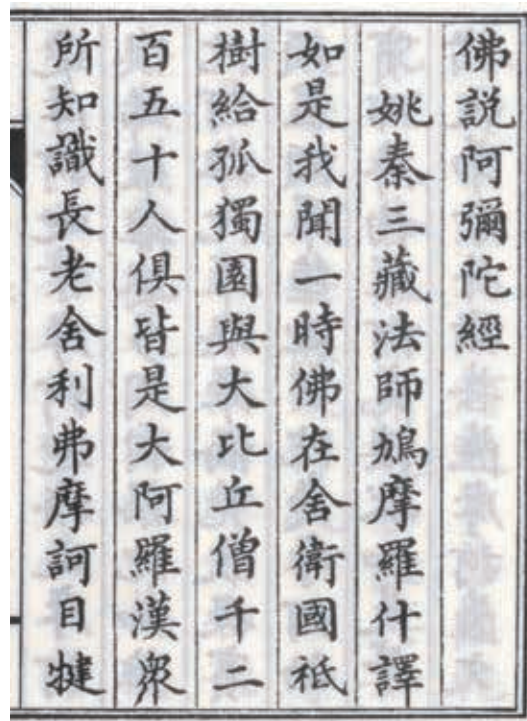 佛説阿彌陀經
姚秦三藏法師鳩摩羅什譯
如是我聞一時佛在舍衛國祇
樹給孤獨園與大比丘僧千二
百五十人俱皆是大阿羅漢衆
所知識長老舍利弗摩訶目犍